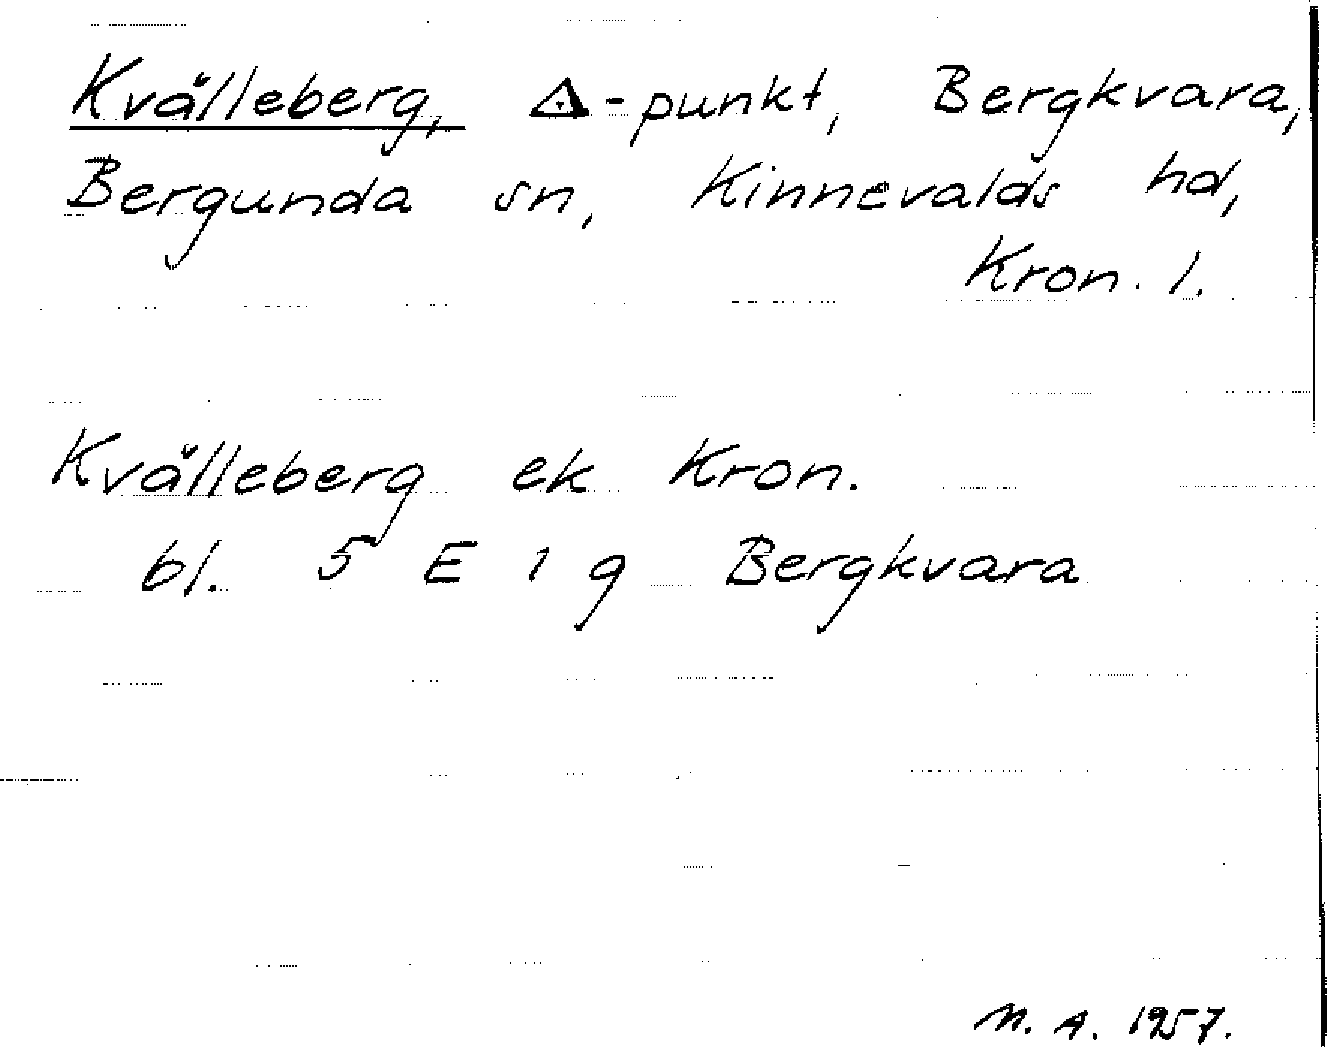 Kvälleberg, △-punkt, Bergkvara,
Bergunda sn, Kinnevalds hd,
Kron. l.
Kvälleberg ek Kron.
bl. 5 E 1 g Bergkvara
N. A. 1957.